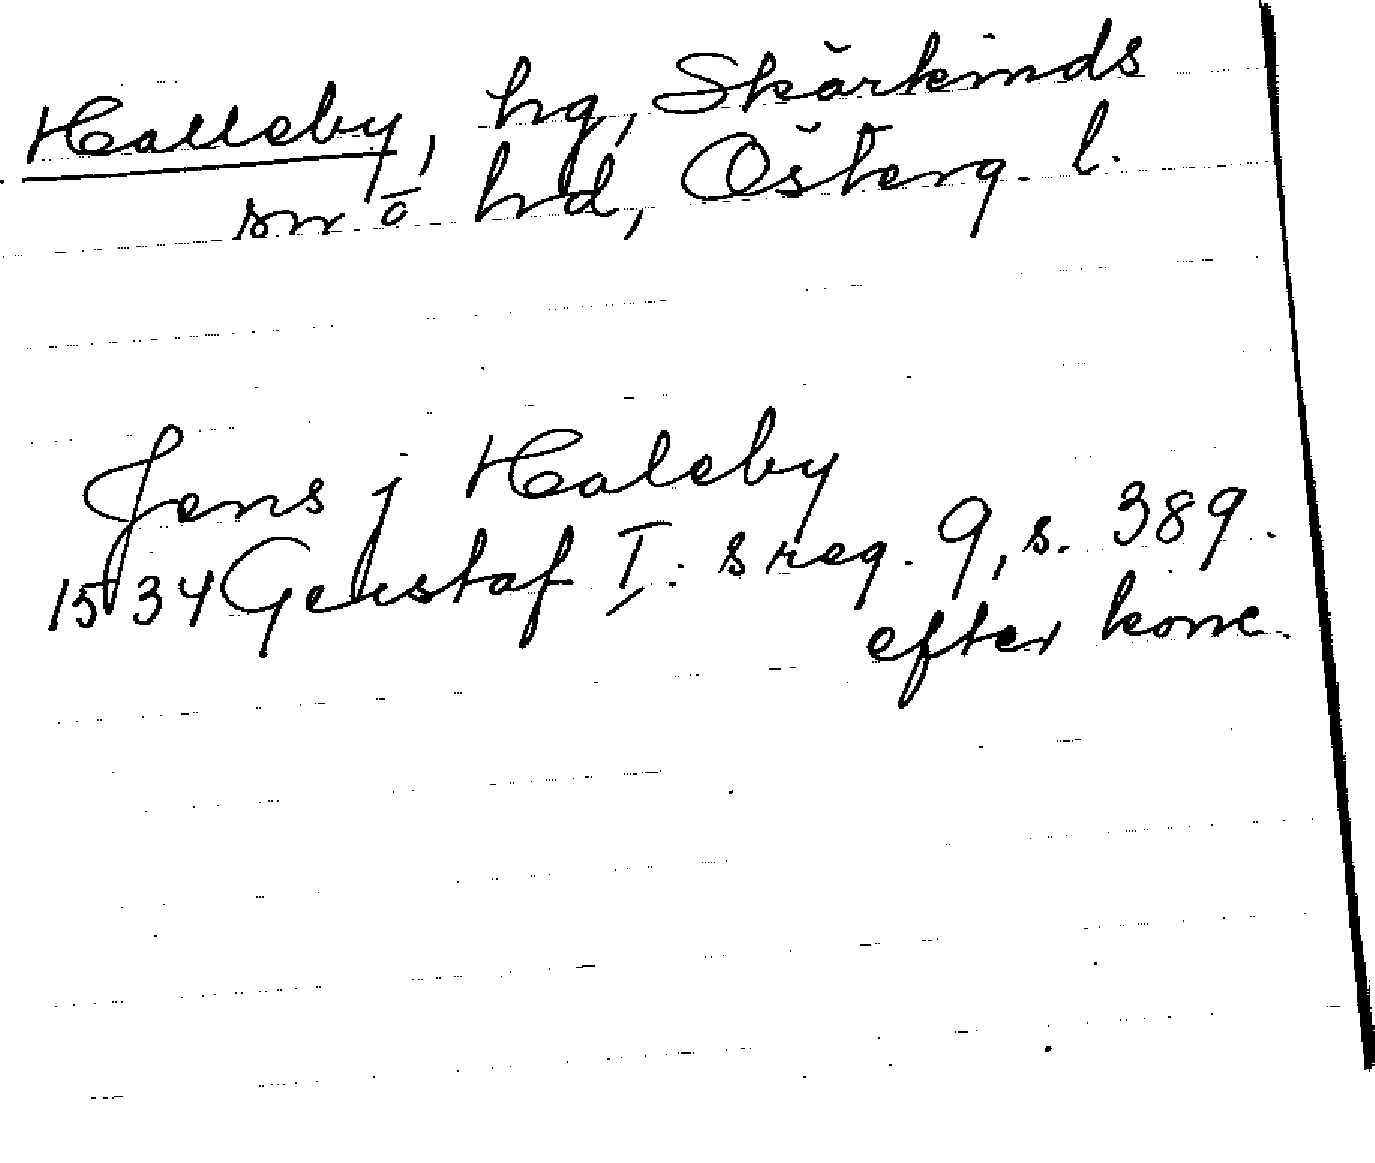 Halleby, hg, Skärkinds
sn o hd, Österg. l.
Jens j Haleby
1534 Gustaf I:s reg. 9, s. 389.
efter konc.